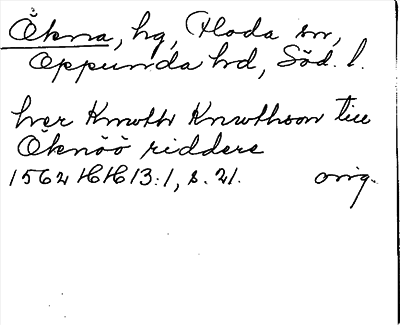 Ökna, hg, Floda sn,
Oppunda hd, Söd. l.
her Knuth Knuthson till
Öknöö riddere
1562 HH 13:1, s. 21. orig.